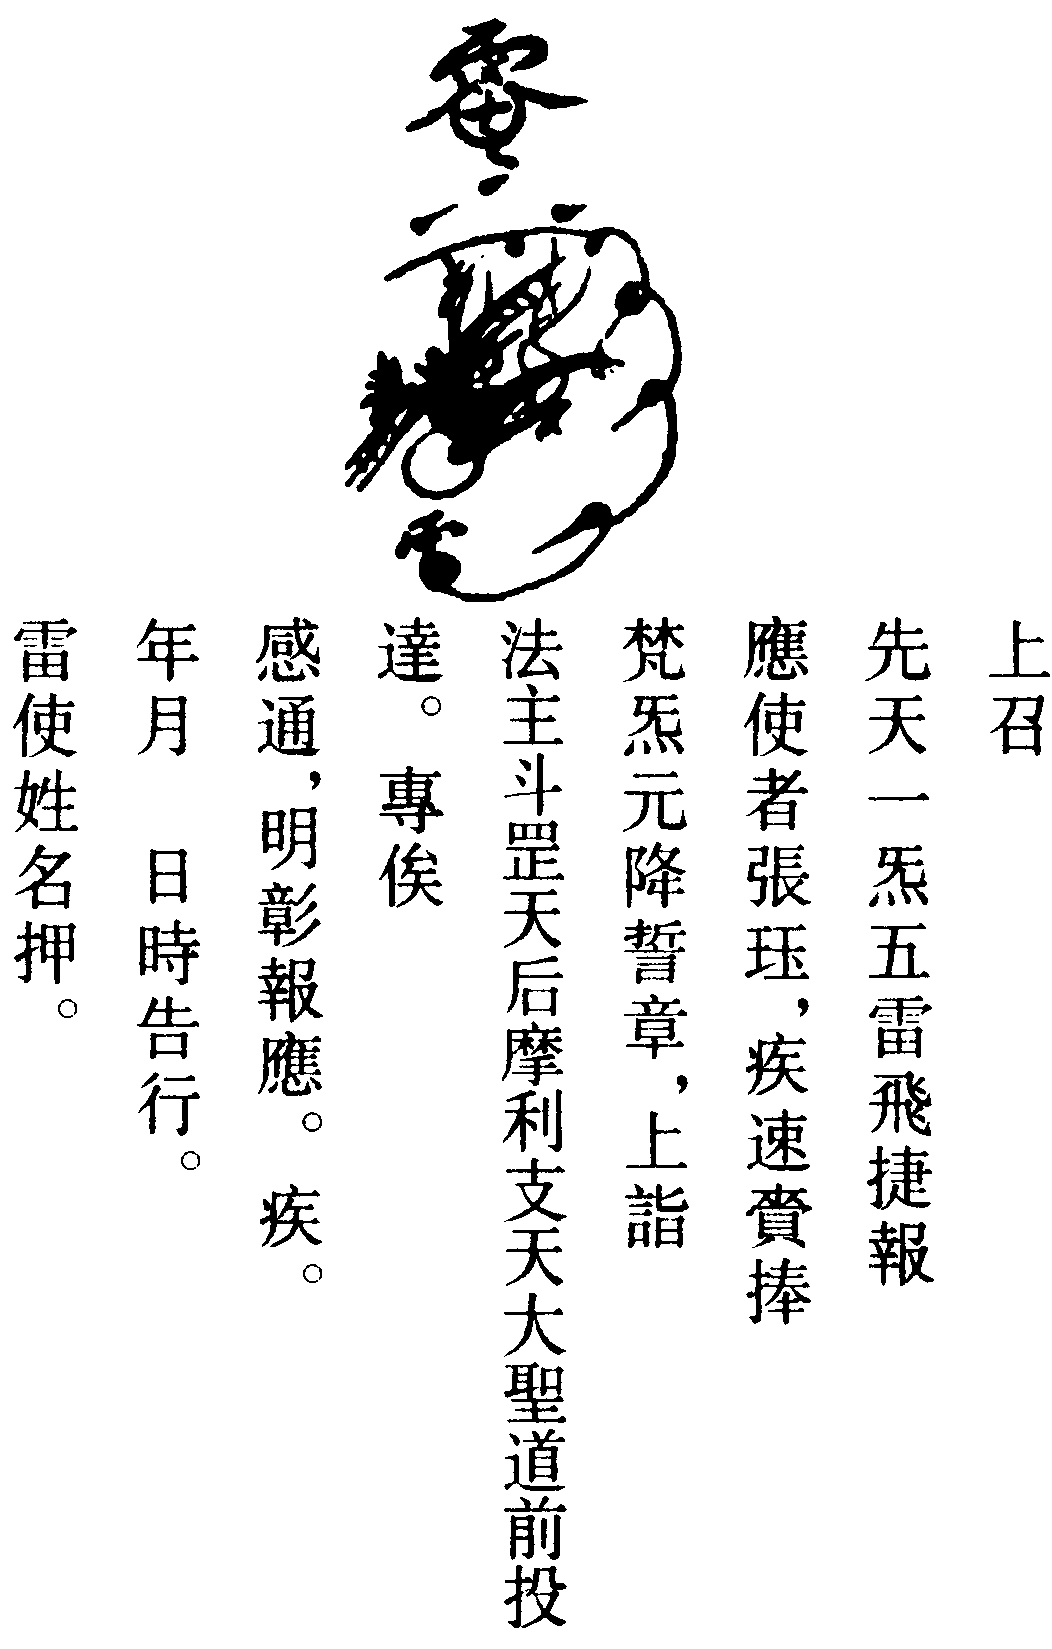 上召
先天一炁五雷飛捷報
應使者張珏，疾速賫捧
梵炁元降誓章，上詣
法主斗罡天后摩利支天大聖道前投
達。專俟
感通，明彰報應。疾。
年月　日時告行。
雷使姓名押。